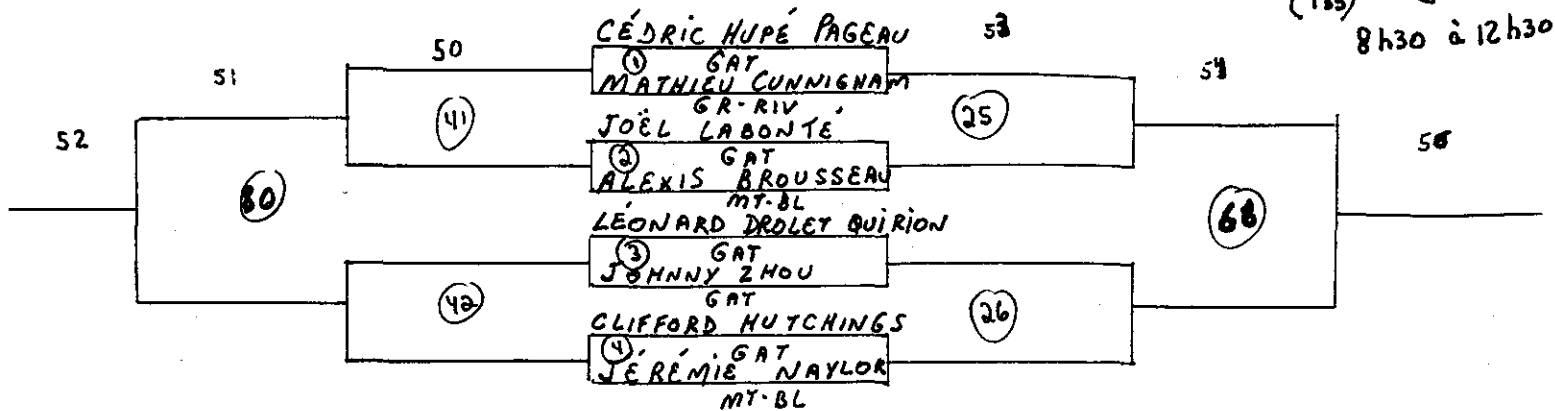 (133)
8h30 à 12h30
CÉDRIC HUPÉ PAGEAU
① GAT
MATHIEU CUNNIGHAM
GR-RIV
JOËL LABONTÉ
② GAT
ALEXIS BROUSSEAU
MT-BL
LÉONARD DROLET QUIRION
③ GAT
JOHNNY ZHOU
GAT
CLIFFORD HUTCHINGS
④ GAT
JÉRÉMIE NAYLOR
MT-BL
52
51
50
53
54
41
42
80
25
26
68